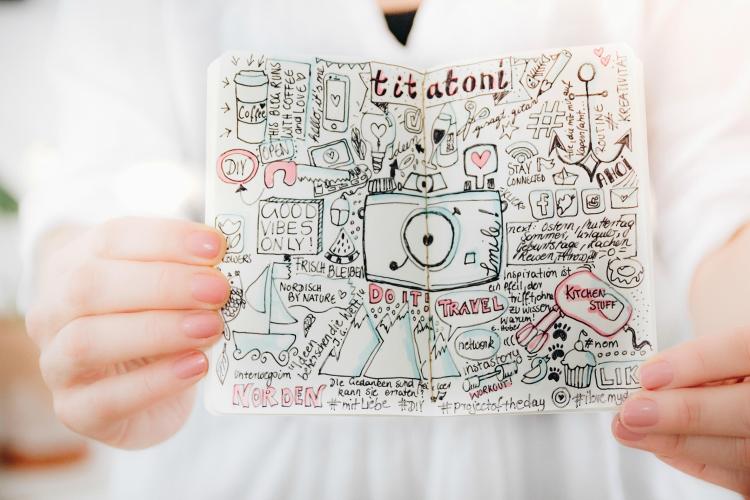 titatoni
Coffee
THIS BLOG RUNS
WITH COFFEE
and LOVE
hello, it's me
OPEN
DIY
#
ROUTINE
KREATIVITÄT
AHOI
STAY
CONNECTED
GOOD
VIBES
ONLY!
Smile!
next: Ostern, Muttertag
Sommer, Urlaub,
Geburtstage, Lachen
FRISCH BLEIBEN
NORDISCH
BY NATURE
Inspiration ist
ein Pfeil, der
trifft, ohne
zu wissen
warum!
KITCHEN-
STUFF
DO IT!
TRAVEL
network
instastory
WORKOUT!
#nom
LIK
unterwegs im
NORDEN
Die Gedanken sind frei
kann sie erraten?
#mitliebe #DIY #projectoftheday